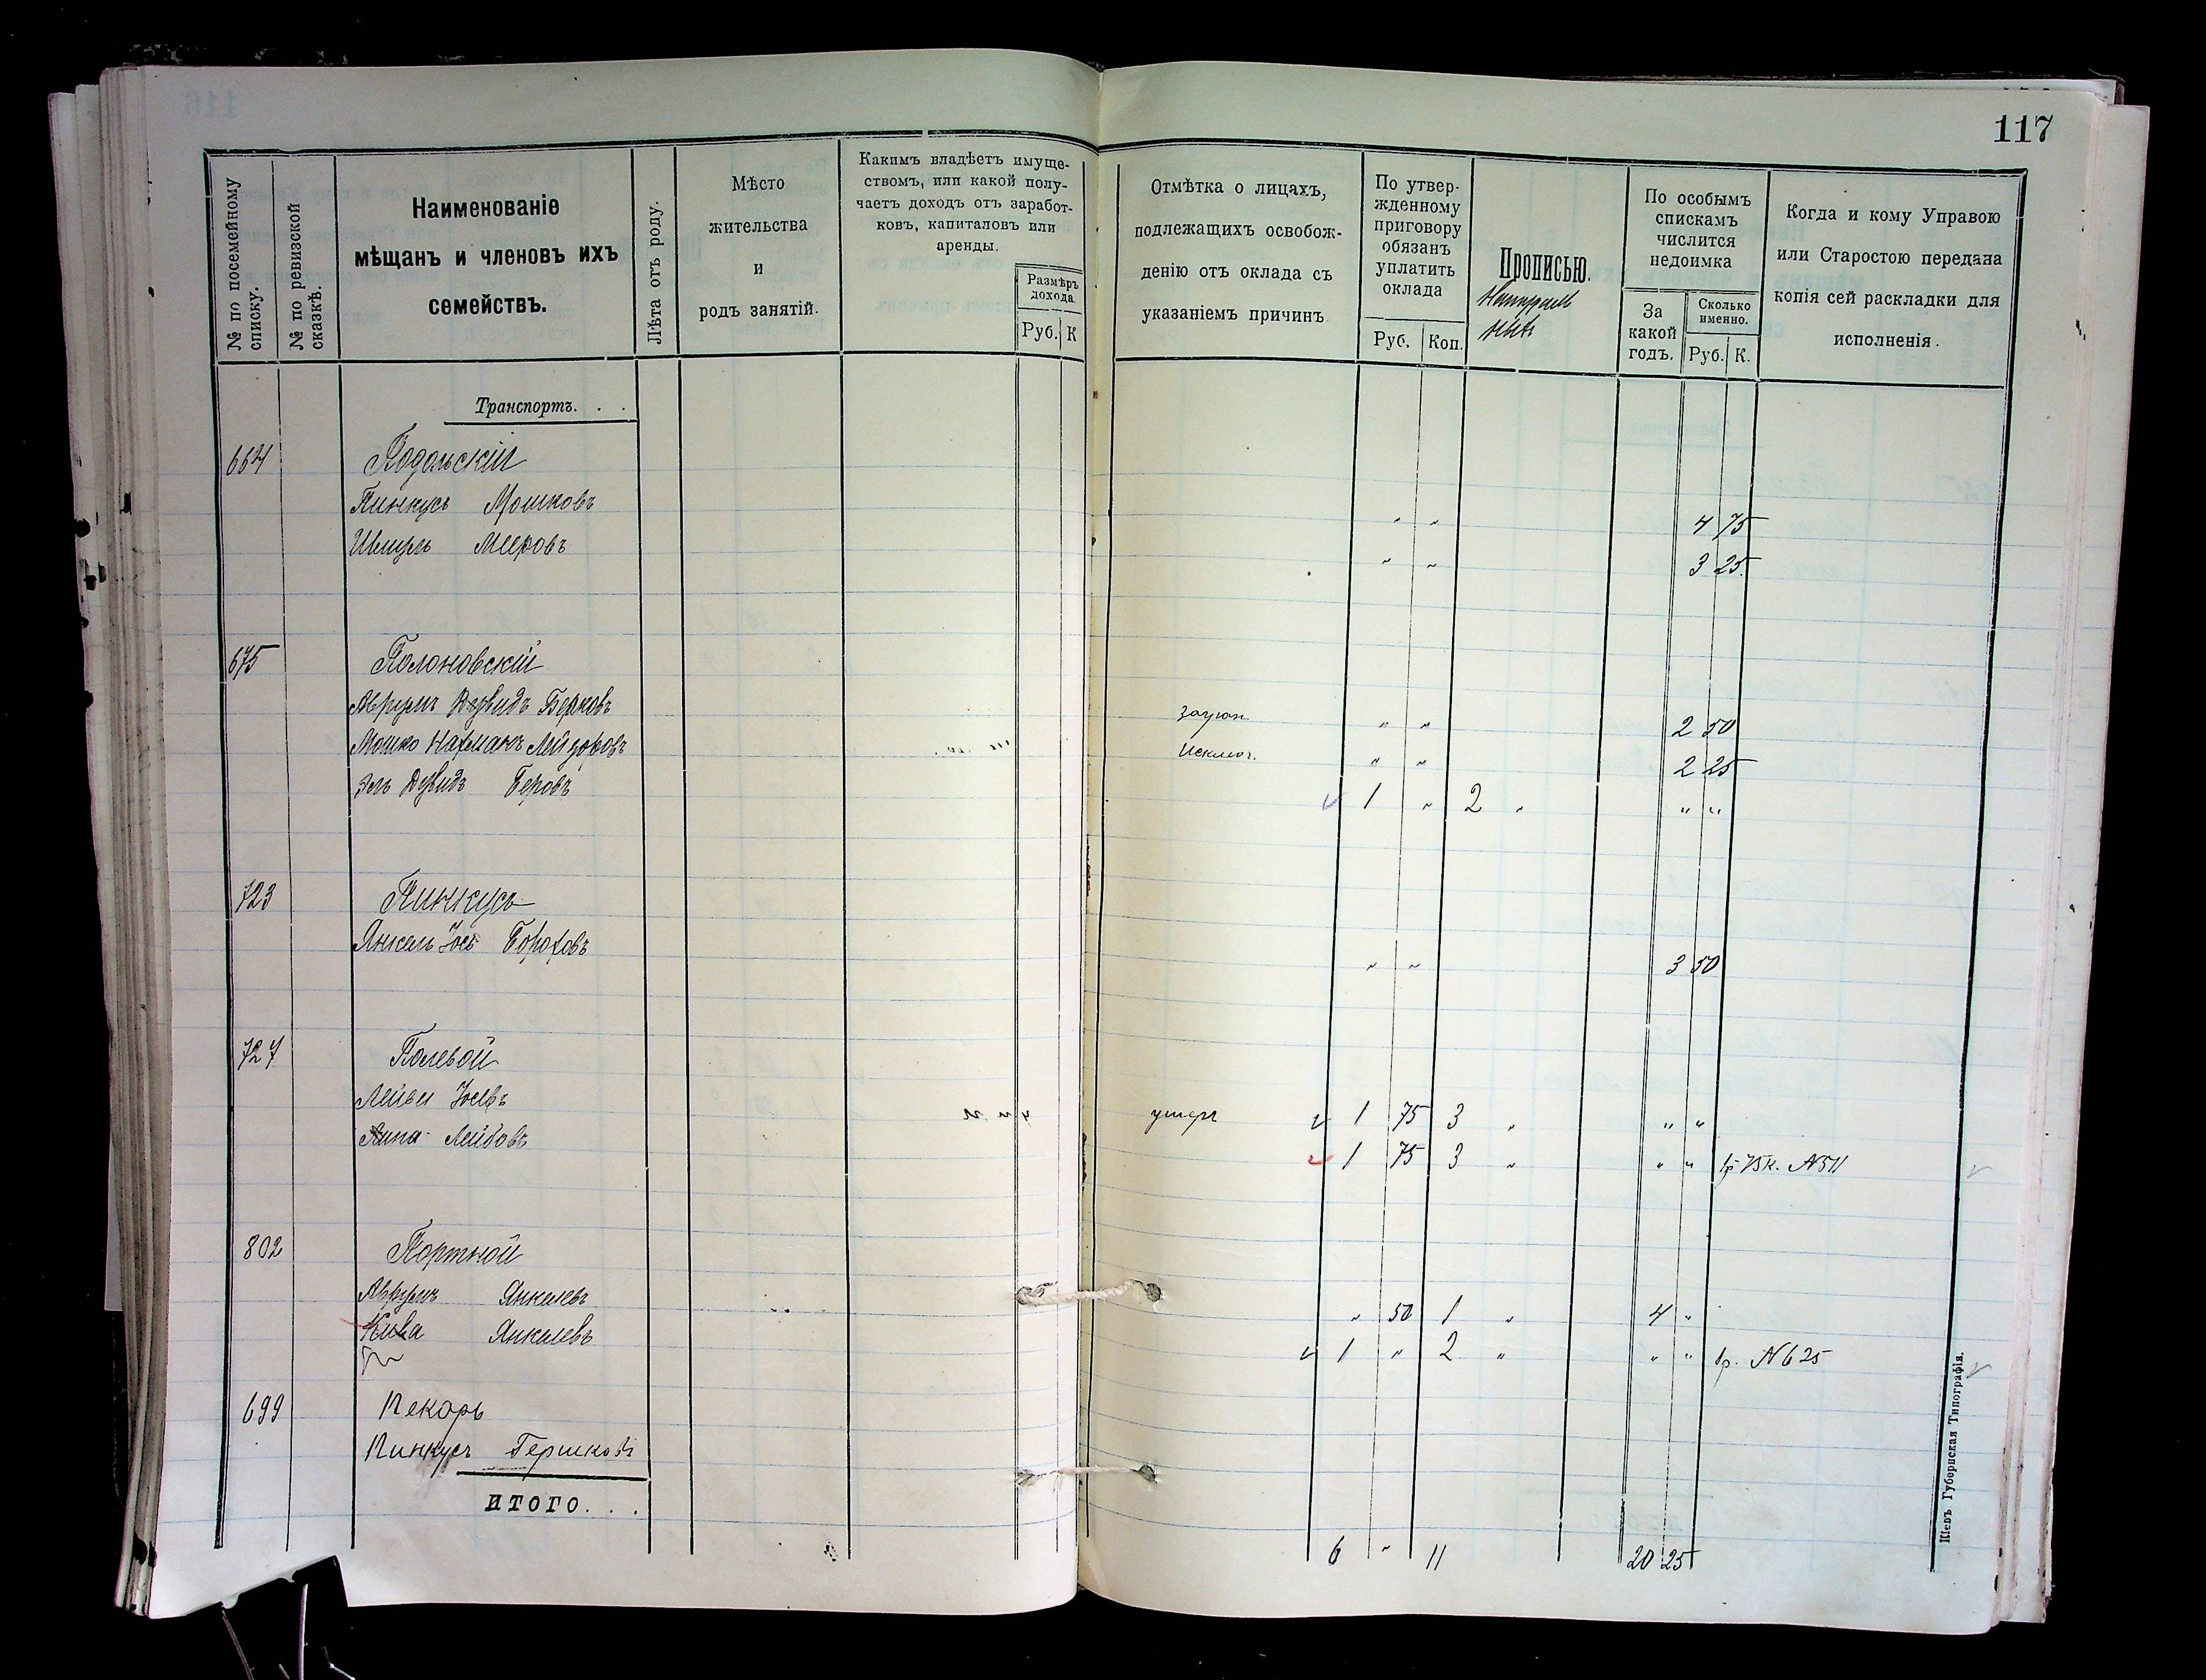 117
№ по посемейному списку.
№ по ревизской сказкѣ.
Наименованіе мѣщанъ и членовъ ихъ семействъ.
Лѣта отъ роду.
Мѣсто жительства и родъ занятій.
Какимъ владѣетъ имуществомъ, или какой получаетъ доходъ отъ заработковъ, капиталовъ или аренды.
Размѣръ дохода.
Руб. К
Отмѣтка о лицахъ, подлежащихъ освобожденію отъ оклада съ указаніемъ причинъ
По утвержденному приговору обязанъ уплатить оклада
Руб. Коп.
Прописью.
По особымъ спискамъ числится недоимка
За какой годъ.
Сколько именно.
Руб. К.
Когда и кому Управою или Старостою передана копія сей раскладки для исполненія.
Транспортъ. . .
664 Подольскій
Пинкусъ Мошковъ " " 4 75
Шмуль Мееровъ " " 3 25.
675 Полоновскій
Аврумъ Дувидъ Берковъ " " 2 50
Мошко Нахманъ Лейзоровъ Исключ. " " 2 25
Эль Дувидъ Беровъ 1 " 2 " " "
723 Пинкусъ
Янкель Іось Бороховъ " " 3 50
727 Полевой
Лейви Іосевъ умеръ 1 75 3 " " "
Липа Лейбовъ 1 75 3 " " " 1р 75к. N 511
802 Портной
Аврумъ Янкелевъ " 50 1 " 4 "
Кива Янкелевъ 1 " 2 " " " 1р. N 625
699 Пекарь
Пинкусъ Гершковъ
ИТОГО. . .
6 " 11 20 25
Кіевъ Губернская Типографія.